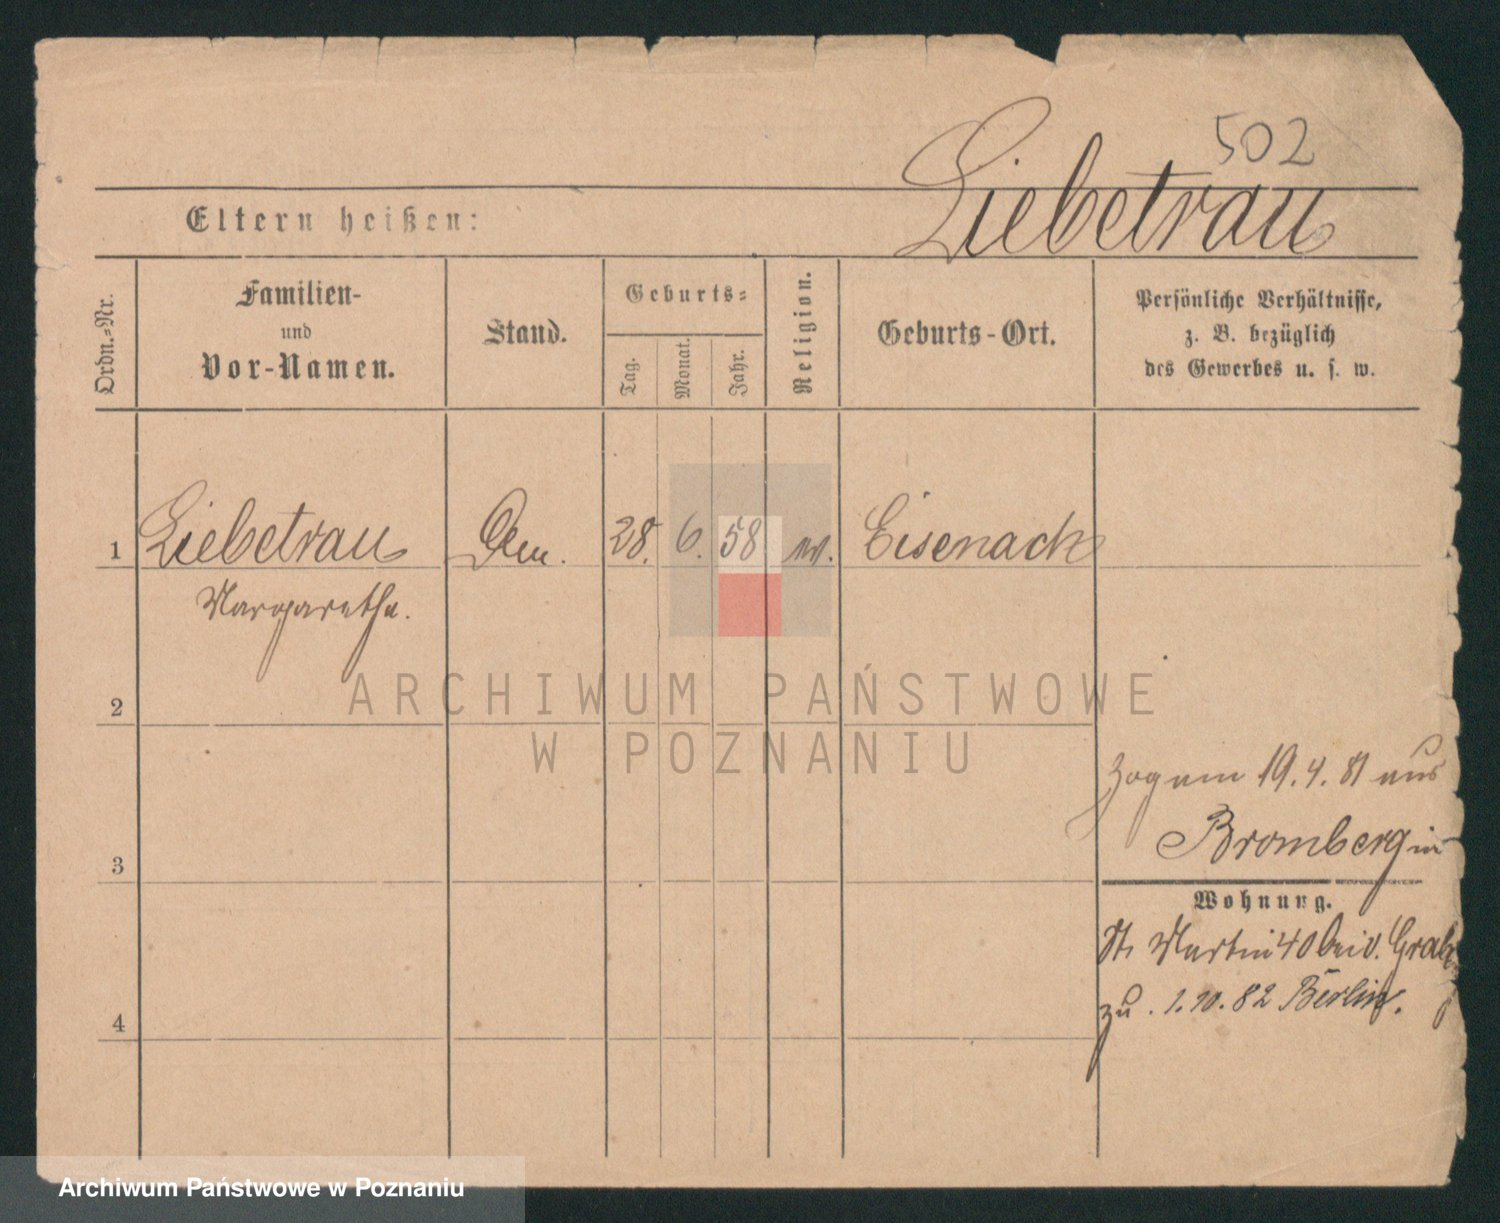 502
Liebetrau
Eltern heißen:
Ordn.-Nr.
Familien-
und
Vor-Namen.
Stand.
Geburts-
Tag.
Monat.
Jahr.
Religion.
Geburts-Ort.
Persönliche Verhältnisse,
z. B. bezüglich
des Gewerbes u. s. w.
1 Liebetrau 28. 6. 58 ev. Eisenach
Margarethe.
2
ARCHIWUM PAŃSTWOWE
W POZNANIU
Zog am 19.4.81 aus
Bromberg in
3
Wohnung.
St. Martin 40 bei v. Grab
zu. 1.10.82 Berlin.
4
Archiwum Państwowe w Poznaniu